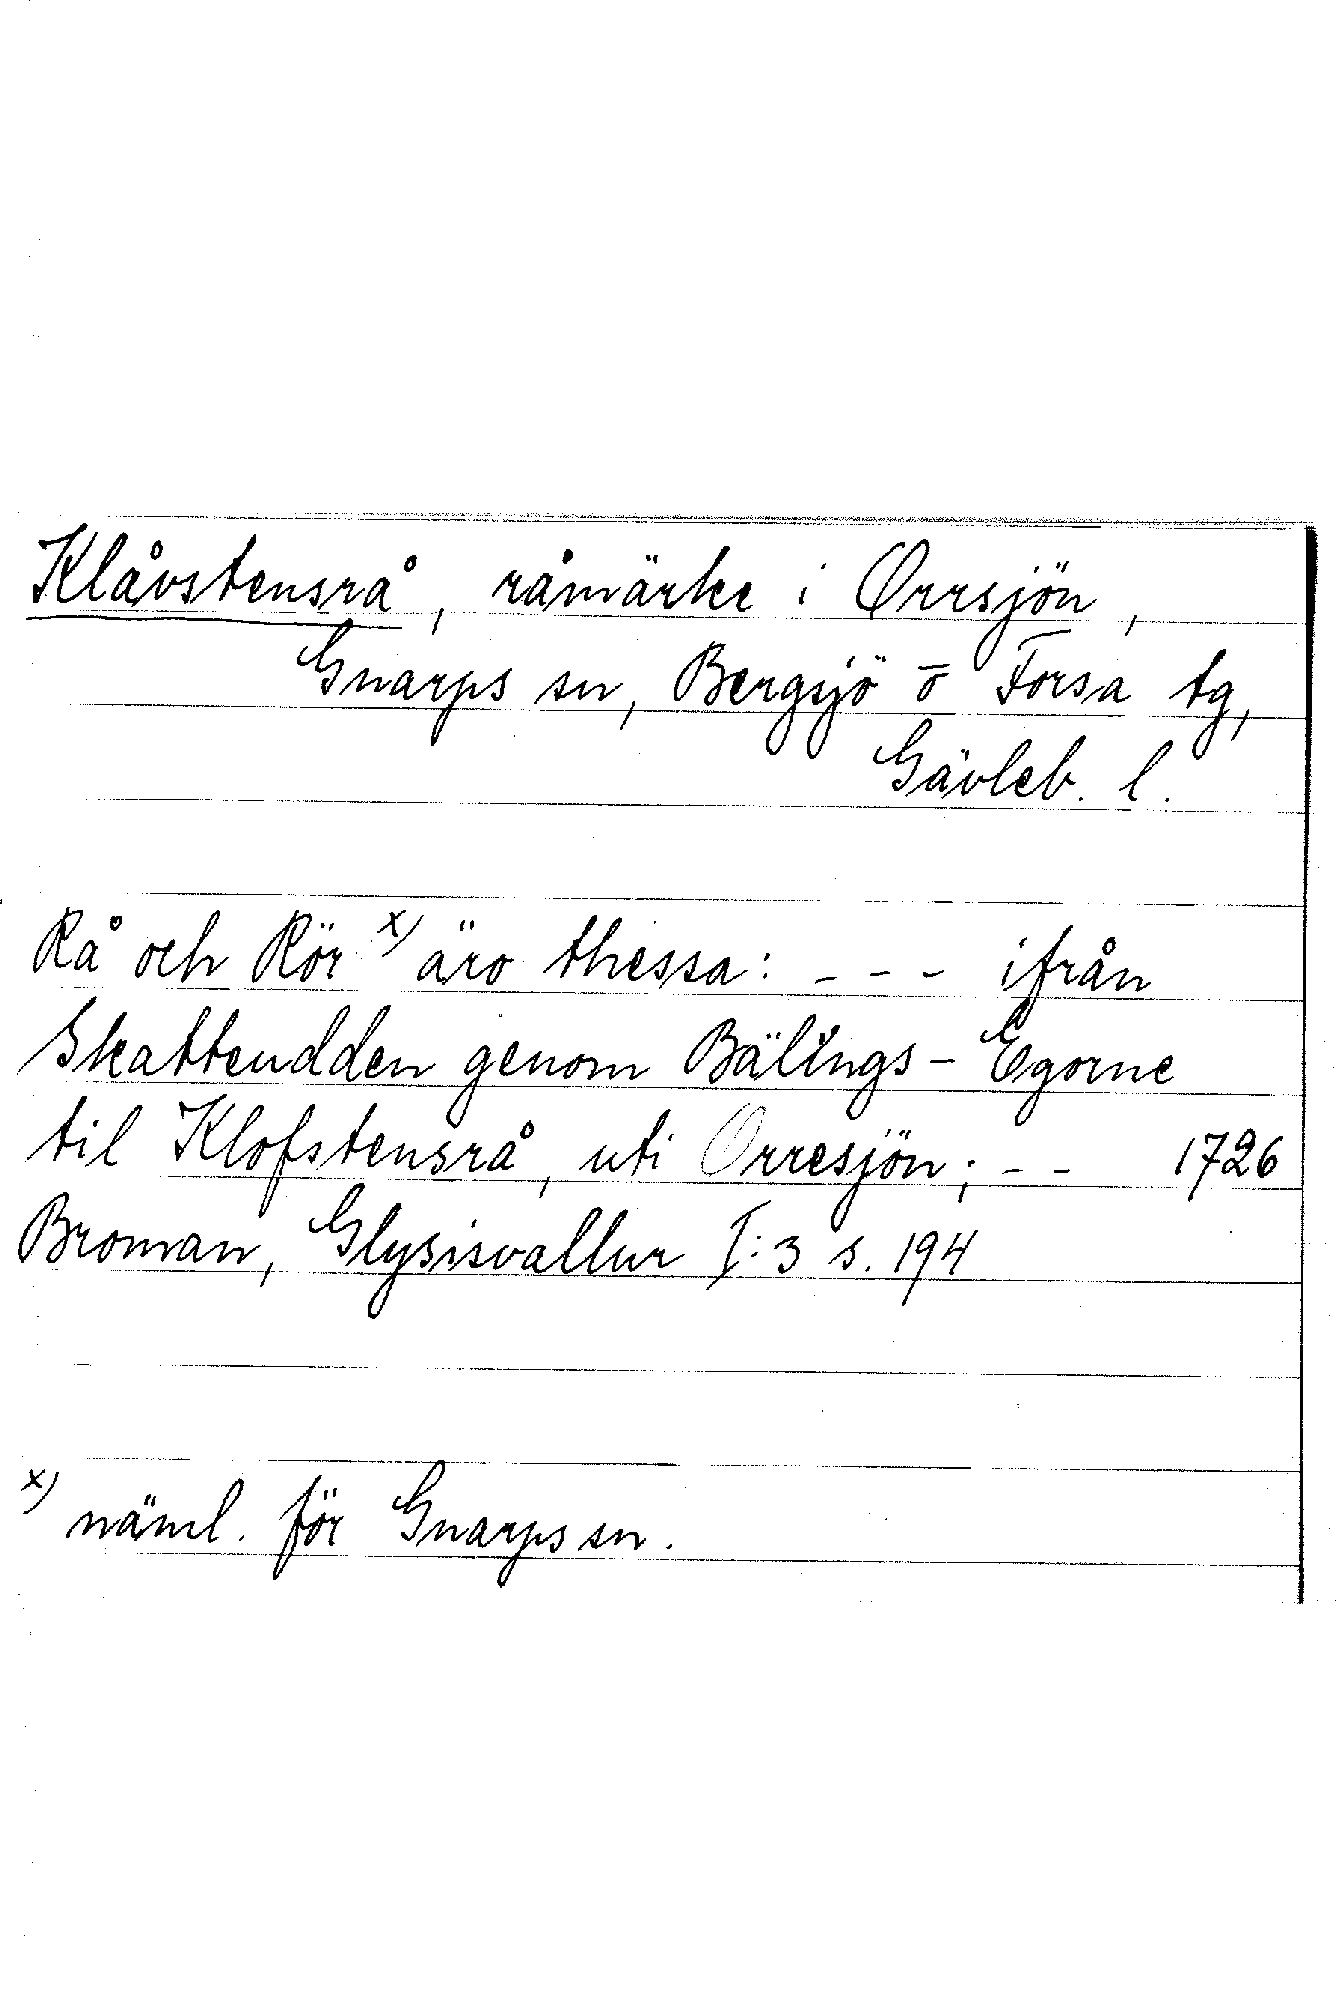 Klåvstensrå, råmärke i Orrsjön,
Gnarps sn, Bergsjö o Forsa tg,
Gävleb. l.
Rå och Rör x) äro thessa: - - - ifrån
Skattudden genom Bälings-Egorne
til Klofstensrå, uti Orresjön; - - 1726
Broman, Glysisvallur I:3 s. 194
x) näml. för Gnarps sn.